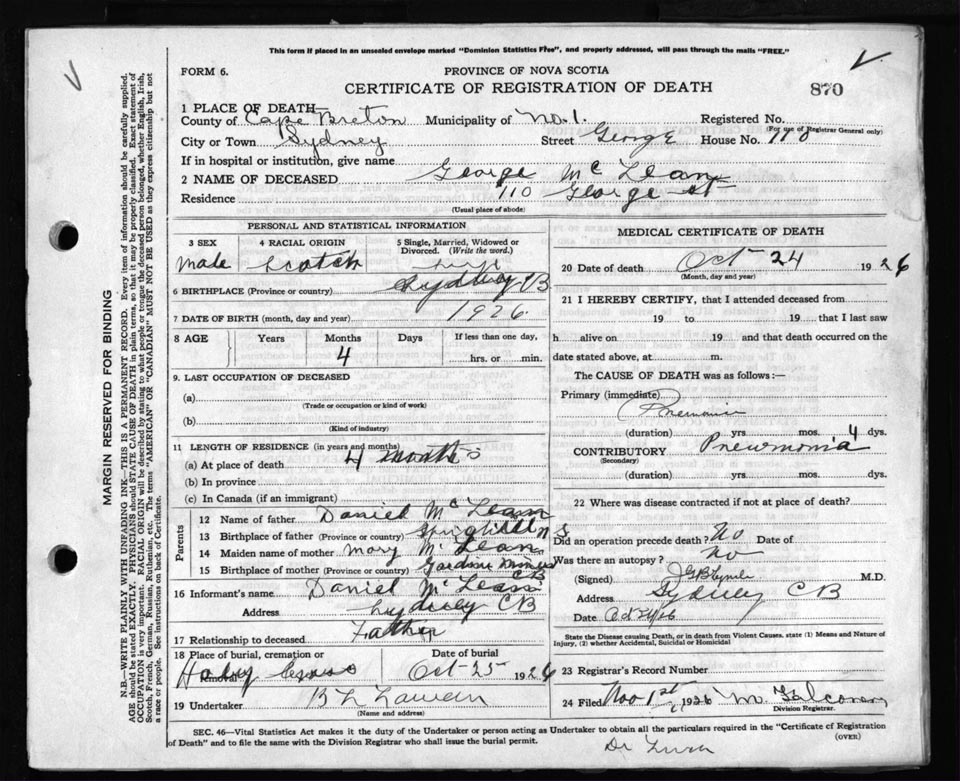 This form if placed in an unsealed envelope marked "Dominion Statistics Free", and properly addressed, will pass through the mails "FREE."
FORM 6.
PROVINCE OF NOVA SCOTIA
CERTIFICATE OF REGISTRATION OF DEATH
870
1 PLACE OF DEATH—
County of Cape Breton Municipality of No. 1. Registered No.
(For use of Registrar General only)
City or Town Sydney Street George House No. 110
If in hospital or institution, give name
2 NAME OF DECEASED George Mc Lean
Residence 110 George St
(Usual place of abode)
PERSONAL AND STATISTICAL INFORMATION
3 SEX 4 RACIAL ORIGIN 5 Single, Married, Widowed or Divorced. (Write the word.)
Male Scotch
6 BIRTHPLACE (Province or country) Sydney CB
7 DATE OF BIRTH (month, day and year) 1926.
8 AGE Years Months Days If less than one day,
4 hrs. or min.
9. LAST OCCUPATION OF DECEASED
(a)
(Trade or occupation or kind of work)
(b)
(Kind of industry)
11 LENGTH OF RESIDENCE (in years and months)
(a) At place of death 4 months
(b) In province
(c) In Canada (if an immigrant)
Parents
12 Name of father Daniel Mc Lean
13 Birthplace of father (Province or country) N S
14 Maiden name of mother Mary Mc Lean
15 Birthplace of mother (Province or country) Gardiner Mines CB
16 Informant's name Daniel Mc Lean
Address Sydney CB
17 Relationship to deceased Father
18 Place of burial, cremation or removal Date of burial
Holy Cross Oct 25 1926
19 Undertaker
(Name and address)
MEDICAL CERTIFICATE OF DEATH
20 Date of death Oct 24 1926
(Month, day and year)
21 I HEREBY CERTIFY, that I attended deceased from
19 to 19 that I last saw
h alive on 19 and that death occurred on the
date stated above, at m.
The CAUSE OF DEATH was as follows:—
Primary (immediate)
Pnemonia
(duration) yrs. mos. 4 dys.
CONTRIBUTORY Pnewmonia
(Secondary)
(duration) yrs. mos. dys.
22 Where was disease contracted if not at place of death?
Did an operation precede death? No Date of
Was there an autopsy? No
(Signed) M.D.
Address Sydney CB
Date Oct 24/26
State the Disease causing Death, or in death from Violent Causes, state (1) Means and Nature of Injury, (2) whether Accidental, Suicidal or Homicidal
23 Registrar's Record Number
24 Filed Nov 1st 1926 M. Falconer
Division Registrar.
SEC. 46—Vital Statistics Act makes it the duty of the Undertaker or person acting as Undertaker to obtain all the particulars required in the "Certificate of Registration
of Death" and to file the same with the Division Registrar who shall issue the burial permit.
(OVER)
MARGIN RESERVED FOR BINDING
N.B.—WRITE PLAINLY WITH UNFADING INK—THIS IS A PERMANENT RECORD. Every item of information should be carefully supplied.
AGE should be stated EXACTLY. PHYSICIANS should STATE CAUSE OF DEATH in plain terms, so that it may be properly classified. Exact statement of
OCCUPATION is very important. RACIAL ORIGIN will be described by stating to what people or tongue the deceased person belonged, whether English, Irish,
Scotch, French, German, Russian, Ruthenian, etc. The terms "AMERICAN" OR "CANADIAN" MUST NOT BE USED as they express citizenship but not
a race or people. See instructions on back of Certificate.